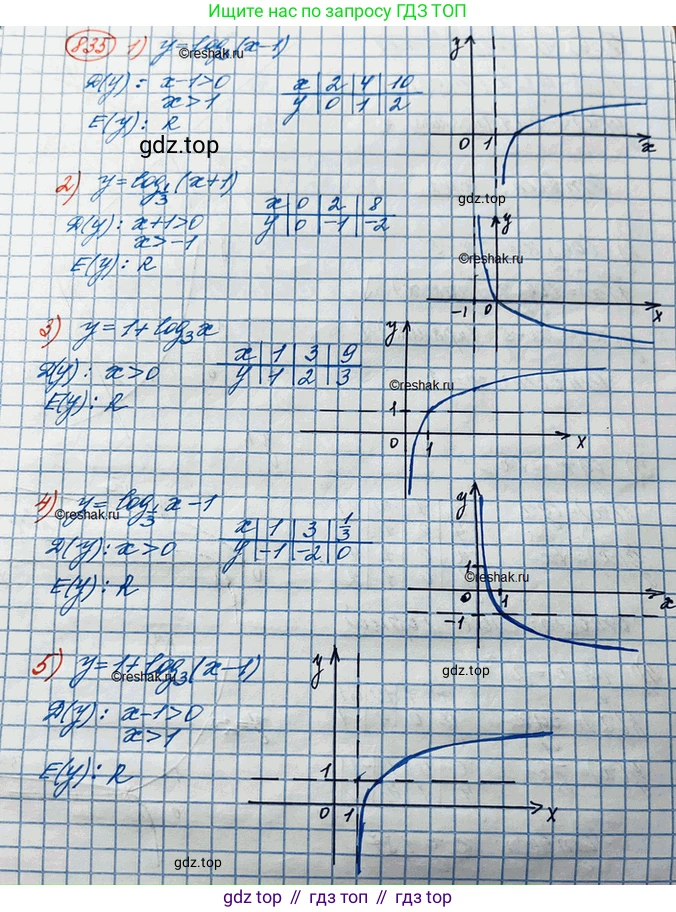 Ищите нас по запросу ГДЗ ТОП
835 1) y=log₃(x-1)
©reshak.ru
D(y): x-1>0
x>1
E(y): R
x 2 4 10
y 0 1 2
y
0 1 x
gdz.top
gdz.top
2) y=log₁/₃(x+1)
D(y): x+1>0
x>-1
E(y): R
x 0 2 8
y 0 -1 -2
y
©reshak.ru
-1 0 x
3) y=1+log₃x
D(y): x>0
E(y): R
x 1 3 9
y 1 2 3
y
©reshak.ru
1
0 1 x
4) y=log₁/₃x-1
©reshak.ru
D(y): x>0
E(y): R
x 1 3 1/3
y -1 -2 0
y
1
©reshak.ru
0 1 x
-1
gdz.top
5) y=1+log₃(x-1)
©reshak.ru
D(y): x-1>0
x>1
E(y): R
y
1
0 1 x
gdz.top
gdz.top // гдз топ // gdz top